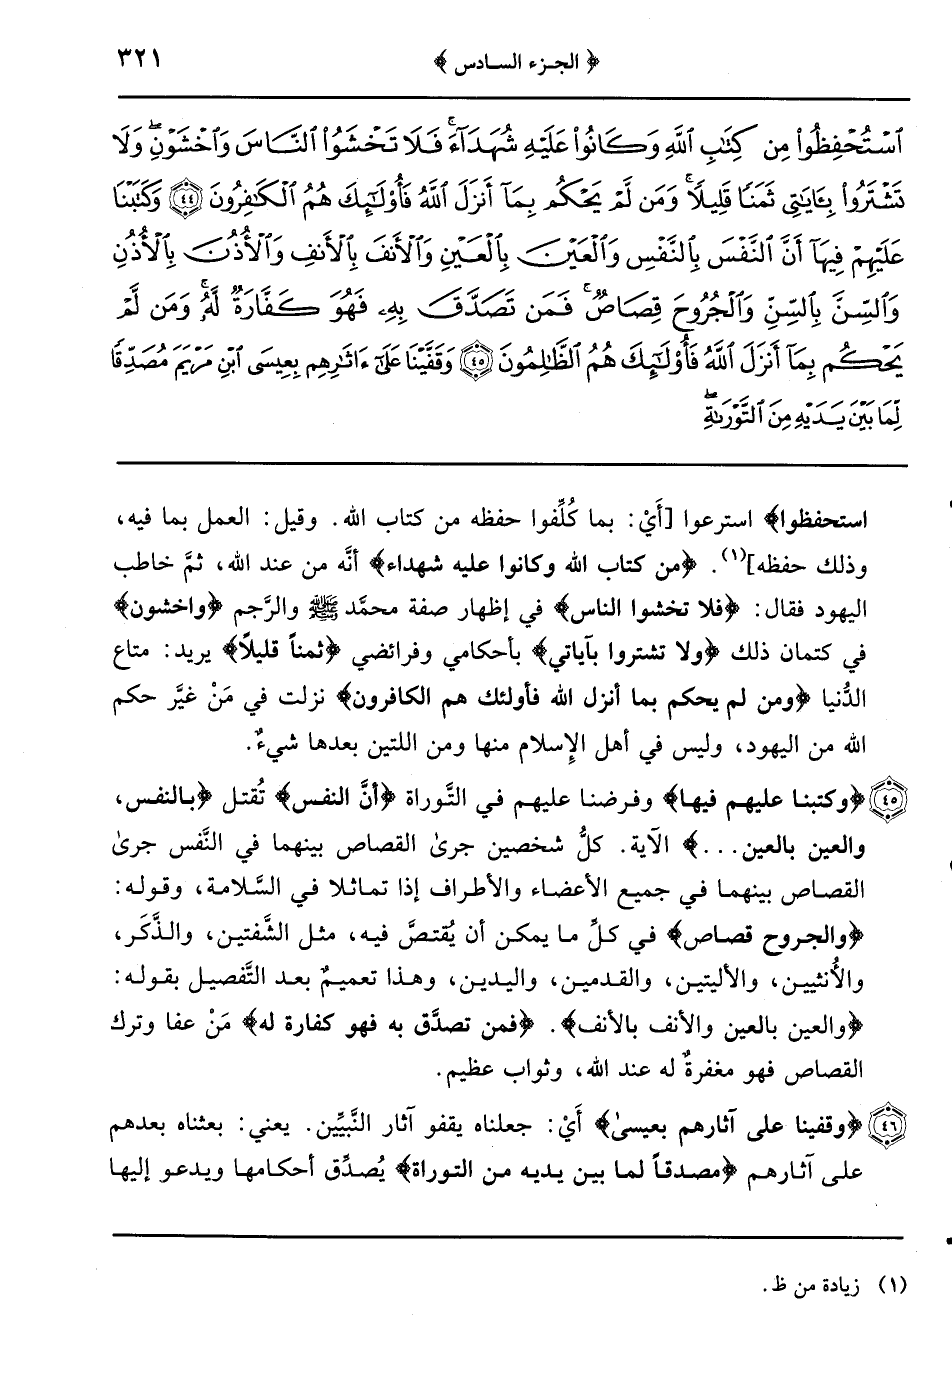 ﴿ الجزء السادس ﴾ ٣٢١
ٱسْتُحْفِظُوا۟ مِن كِتَٰبِ ٱللَّهِ وَكَانُوا۟ عَلَيْهِ شُهَدَآءَ ۚ فَلَا تَخْشَوُا۟ ٱلنَّاسَ وَٱخْشَوْنِ ۖ وَلَا
تَشْتَرُوا۟ بِـَٔايَٰتِى ثَمَنًا قَلِيلًا ۚ وَمَن لَّمْ يَحْكُم بِمَآ أَنزَلَ ٱللَّهُ فَأُو۟لَٰٓئِكَ هُمُ ٱلْكَٰفِرُونَ ﴿٤٤﴾ وَكَتَبْنَا
عَلَيْهِمْ فِيهَآ أَنَّ ٱلنَّفْسَ بِٱلنَّفْسِ وَٱلْعَيْنَ بِٱلْعَيْنِ وَٱلْأَنفَ بِٱلْأَنفِ وَٱلْأُذُنَ بِٱلْأُذُنِ
وَٱلسِّنَّ بِٱلسِّنِّ وَٱلْجُرُوحَ قِصَاصٌ ۚ فَمَن تَصَدَّقَ بِهِۦ فَهُوَ كَفَّارَةٌ لَّهُۥ ۚ وَمَن لَّمْ
يَحْكُم بِمَآ أَنزَلَ ٱللَّهُ فَأُو۟لَٰٓئِكَ هُمُ ٱلظَّٰلِمُونَ ﴿٤٥﴾ وَقَفَّيْنَا عَلَىٰٓ ءَاثَٰرِهِم بِعِيسَى ٱبْنِ مَرْيَمَ مُصَدِّقًا
لِّمَا بَيْنَ يَدَيْهِ مِنَ ٱلتَّوْرَىٰةِ ۖ
استحفظوا﴾ استرعوا [أَيْ: بما كُلِّفوا حفظه من كتاب الله. وقيل: العمل بما فيه،
وذلك حفظه](١). ﴿من كتاب الله وكانوا عليه شهداء﴾ أنَّه من عند الله، ثمَّ خاطب
اليهود فقال: ﴿فلا تخشوا الناس﴾ في إظهار صفة محمَّد ﷺ والرَّجم ﴿واخشون﴾
في كتمان ذلك ﴿ولا تشتروا بآياتي﴾ بأحكامي وفرائضي ﴿ثمناً قليلاً﴾ يريد: متاع
الدُّنيا ﴿ومن لم يحكم بما أنزل الله فأولئك هم الكافرون﴾ نزلت في مَنْ غيَّر حكم
الله من اليهود، وليس في أهل الإِسلام منها ومن اللتين بعدها شيءٌ.
﴿٤٥﴾ ﴿وكتبنا عليهم فيها﴾ وفرضنا عليهم في التَّوراة ﴿أنَّ النفس﴾ تُقتل ﴿بالنفس،
والعين بالعين...﴾ الآية. كلُّ شخصين جرىٰ القصاص بينهما في النَّفس جرىٰ
القصاص بينهما في جميع الأعضاء والأطراف إذا تماثلا في السَّلامة، وقوله:
﴿والجروح قصاص﴾ في كلِّ ما يمكن أن يُقتصَّ فيه، مثل الشَّفتين، والذَّكَر،
والأُنثيين، والأليتين، والقدمين، واليدين، وهذا تعميمٌ بعد التَّفصيل بقوله:
﴿والعين بالعين والأنف بالأنف﴾. ﴿فمن تصدَّق به فهو كفارة له﴾ مَنْ عفا وترك
القصاص فهو مغفرةٌ له عند الله، وثواب عظيم.
﴿٤٦﴾ ﴿وقفينا على آثارهم بعيسىٰ﴾ أَيْ: جعلناه يقفو آثار النَّبيِّين. يعني: بعثناه بعدهم
على آثارهم ﴿مصدقاً لما بين يديه من التوراة﴾ يُصدِّق أحكامها ويدعو إليها
(١) زيادة من ظ.